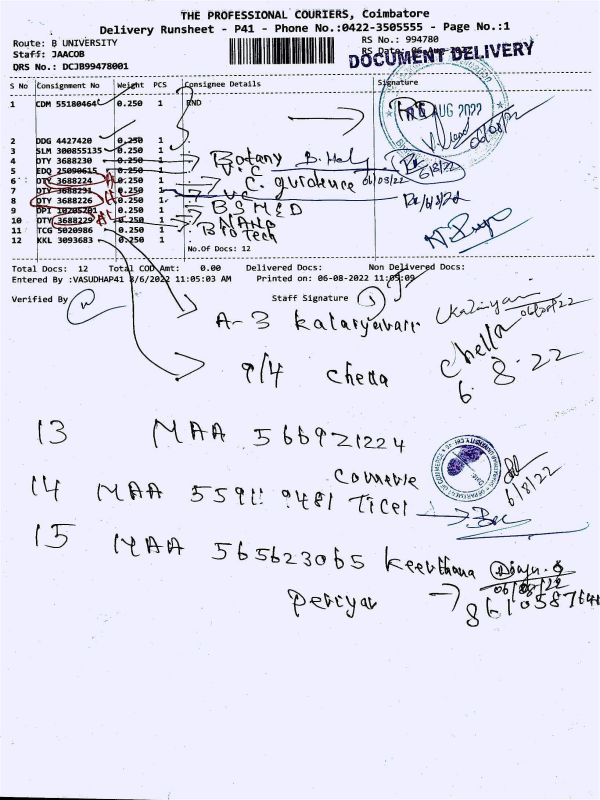 THE PROFESSIONAL COURIERS, Coimbatore
Delivery Runsheet - P41 - Phone No.:0422-3505555 - Page No.:1
Route: B UNIVERSITY RS No.: 994780
Staff: JAACOB RS Date: 06-Aug-2022
DOCUMENT DELIVERY
QRS No.: DCJB99478001
S No Consignment No Weight PCS Consignee Details Signature
1 CDM 55180464 0.250 1 RND
AUG 2022
06/08/22
2 DDG 4427420 0.250 1
3 SLM 300855135 0.250 1
4 DTY 3688230 0.250 1 Botany
5 EDQ 25090615 0.250 1 V.C
6 DTY 3688224 0.250 1 C. guidence 06/08/22
7 DTY 3688231 0.250 1 V.C
8 DTY 3688226 0.250 1 BSMED
9 DPI 10205201 0.250 1
10 DTY 3688229 0.250 1 NANO
11 TCG 5020986 0.250 1 Biotech
12 KKL 3093683 0.250 1
No.Of Docs: 12
Total Docs: 12 Total COD Amt: 0.00 Delivered Docs: Non Delivered Docs:
Entered By :VASUDHAP41 8/6/2022 11:05:03 AM Printed on: 06-08-2022 11:05:09
Verified By Staff Signature
A-3 06/08/22
9/4 Chella Chella 6.8.22
13 MAA 566921224
14 MAA 9481 6/8/22
15 MAA 565623065 Keerthana 06/08/22
Periyar